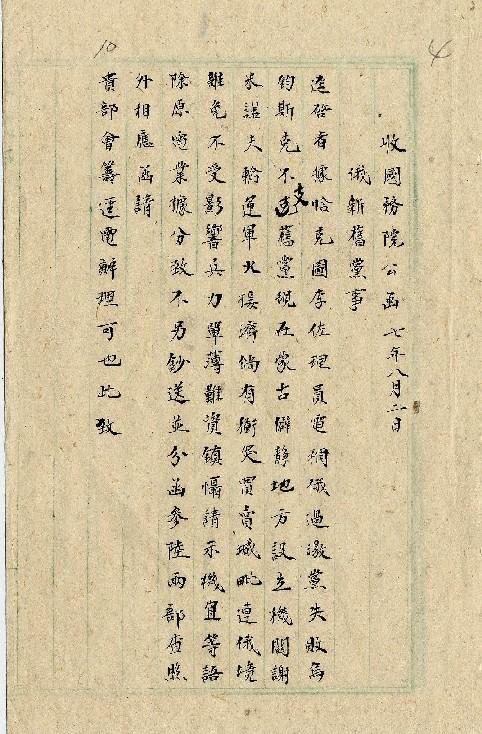 4
10
收國務院公函 七年八月二日
俄新舊黨事
逕啓者據恰克圖李佐理員電稱俄過激黨失敗烏
鈞斯克不支舊黨現在蒙古僻靜地方設立機關謝
米諾夫轉運軍火接濟倘有衝突買賣城毗連俄境
難免不受影響兵力單薄難資鎮懾請示機宜等語
除原電業據分致不另鈔送並分函參陸兩部查照
外相應函請
貴部會籌逕電辦理可也此致